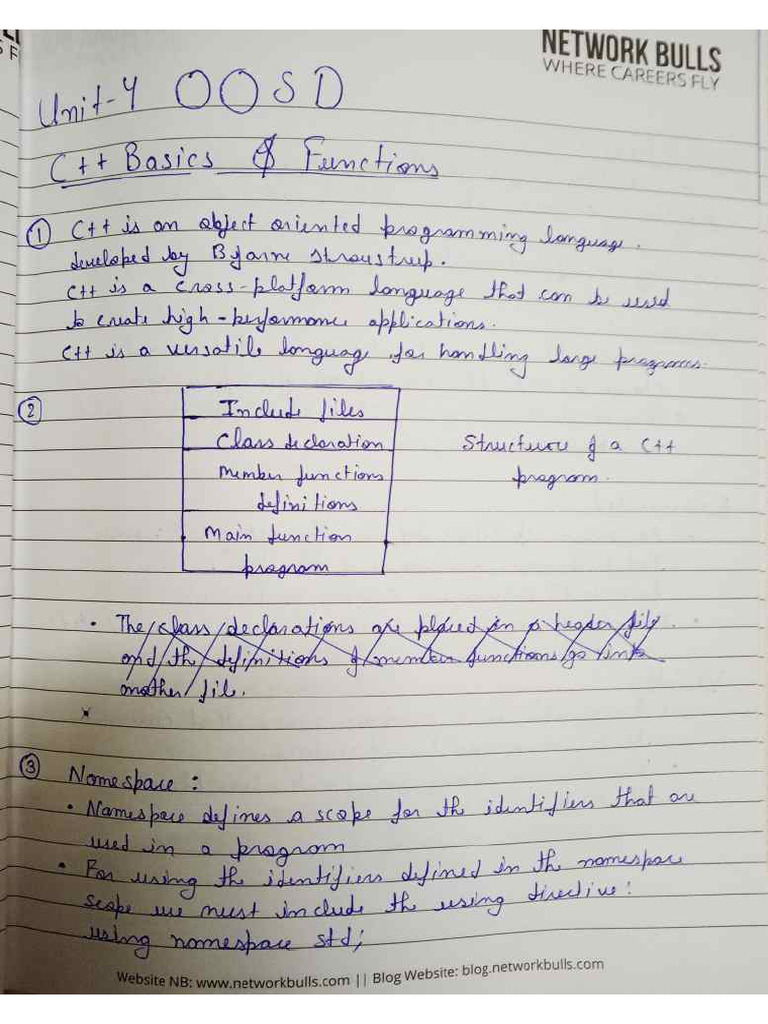 NETWORK BULLS
WHERE CAREERS FLY
Unit-4 OOSD
C++ Basics & Functions
① C++ is an object oriented programming language.
developed by Bjarne Stroustrup.
C++ is a cross-platform language that can be used
to create high-performance applications.
C++ is a versatile language for handling large programs.
②
Include files
Class declaration
Member functions
definitions
Main function
program
Structure of a C++
program.
• The class declarations are placed in a header file
and the definitions of member functions go into
another file.
x
③ Namespace :
• Namespace defines a scope for the identifiers that are
used in a program
• For using the identifiers defined in the namespace
scope we must include the using directive:
using namespace std;
Website NB: www.networkbulls.com || Blog Website: blog.networkbulls.com